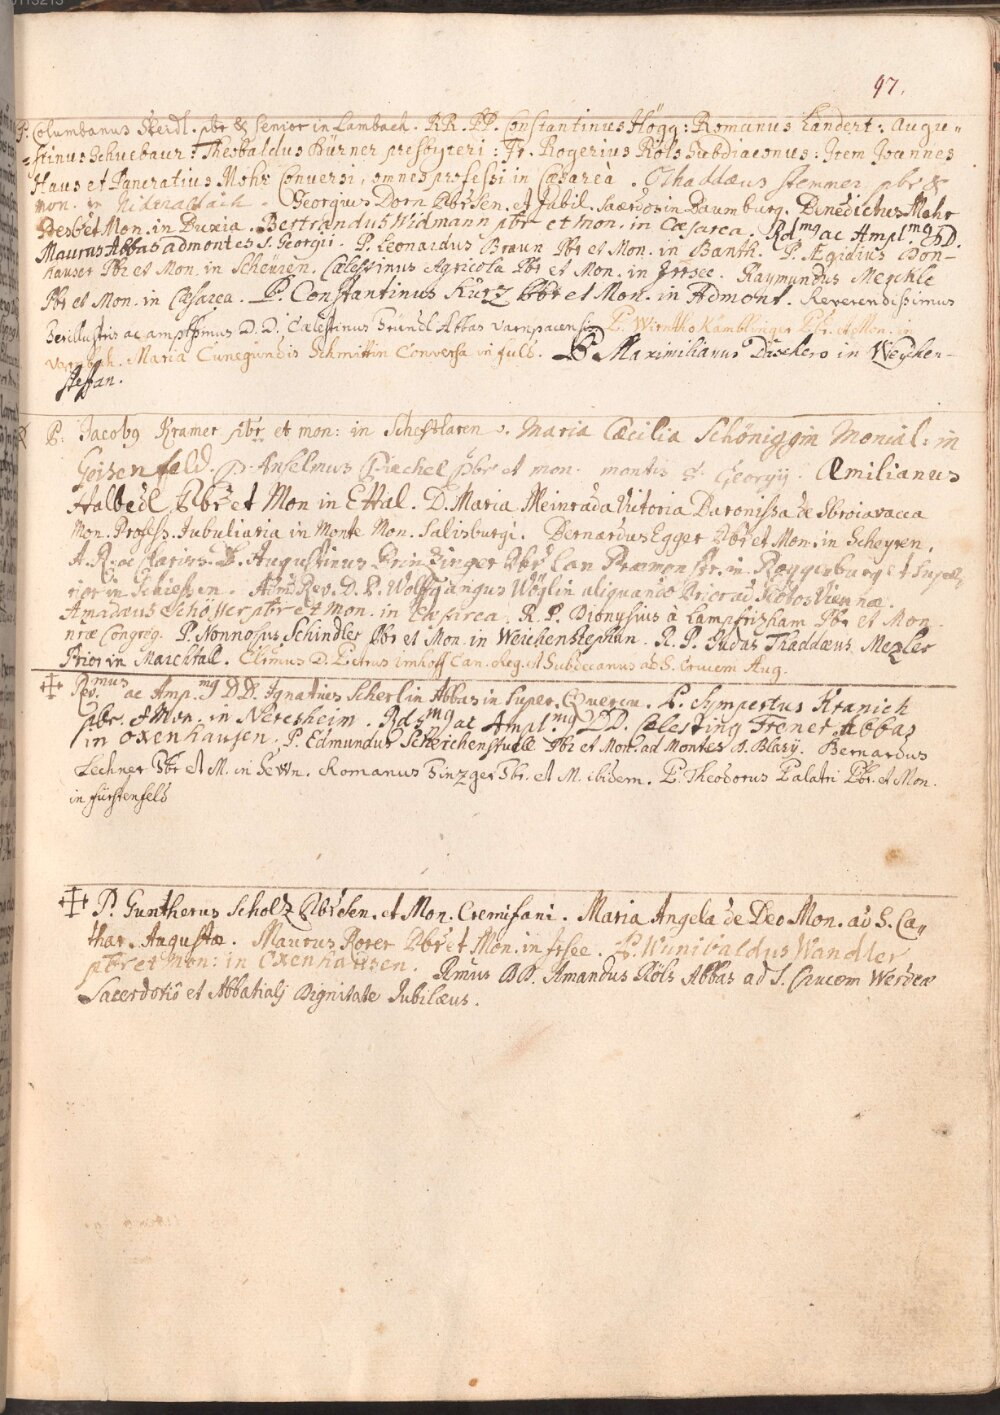 97.
P. Columbanus Steidl. pbr & senior in Lambach. RR. PP. Constantinus Högg: Romanus Landert: Augu„
stinus Schuebaur: Theobaldus Dürner presbyteri: Fr. Rogerius Röls Subdiaconus: Item Joannes
Haus et Pancratius Mohr Conversi, omnes professi in Cæsarea. Thaddæus Stemmer pbr &
mon. in. Georgius Dorn Pbr Sen. et Jubil. Sacerdos in Baumburg. Benedictus Mohr
Presb. et Mon. in Buxia. Bertrandus Widmann pbr et mon. in Cæsarea. Rdmg ac Ampl.mg DD.
Maurus Abbas ad montes S. Georgii. P. Leonardus Braun Pbr et Mon. in Banth. P. Ægidius Don-
hauser Pbr et Mon. in Scheüren. Cælestinus Agricola Pbr et Mon. in Yrsee. Raymundus Mechle
Pbr et Mon. in Cæsarea. P. Constantinus Kurz Pbr et Mon. in Admont. Reverendissimus
Perillustris ac amplissimus D. D. Cælestinus Gründl Abbas Varnpacensis P. Wirntho Kamblinger Pbr. et Mon. in
Varnpach. Maria Cunegundis Schmittin Conversa in fuls. P. Maximilianus Dischers in Weychen-
stephan.
P. Jacobg Kramer pbr et mon: in Scheftlaren. Maria Cæcilia Schöniggin Monial: in
Geisenfeld. P. Anselmus pbr et mon. montis S. Georgij. Æmilianus
Halbedl Pbr et Mon in Ettal. D. Maria Meinrada Victoria Baronissa de Sbroiavacca
Mon. Profess. Jubilaria in Monte Mon. Salisburgi. Bernardus Egger Pbr et Mon. in Scheyren.
A. R. ac Clariss. D. Augustinus Prinzinger Pbr Can Præmonstr. in Roggenburg et Supe-
rior in Schiessen. Adm. Rev. D. P. Wolfgangus Wöglin aliquando Prior ad Scotos Viennæ.
Amadæus Schösser pbr et mon. in Cæsarea. R. P. Dionysius à Lampfrizham Pbr et Mon.
nræ Congreg. P. Nonnosus Schindler Pbr et Mon. in Weichenstephan. R. P. Judas Thaddæus Mezler
Prior in Marchtall. Clrmus D. Petrus imhoff Can. Reg. et Subdecanus ad S. Crucem Aug.
Rev.mus ac Amp.mg DD. Ignatius Scherlin Abbas in Super. Quercu. P. Sympertus Kranich
pbr. et Mon. in Neresheim. Rdsmg ac Ampl.mg DD. Cælesting Frener Abbas
in Oxenhausen. P. Edmundus Scheichenstuell Pbr et Mon. ad Montes S. Blasy. Bernardus
Lechner Pbr et M. in Seon. Romanus Pinzger Pbr. et M. ibidem. P. Theodorus Palatri Pbr. et Mon.
in fürstenfeld
P. Guntherus Scholz Pbr Sen. et Mon. Cremifani. Maria Angela de Deo Mon. ad S. Ca„
thar. Augustæ. Maurus Rorer Pbr et Mon. in Irsee. P. Wunibaldus Wandler
pbr et mon: in Oxenhausen. Rmus DD. Amandus Röls Abbas ad S. Crucem Werdeæ
Sacerdotij et Abbatialj Dignitate Jubilæus.